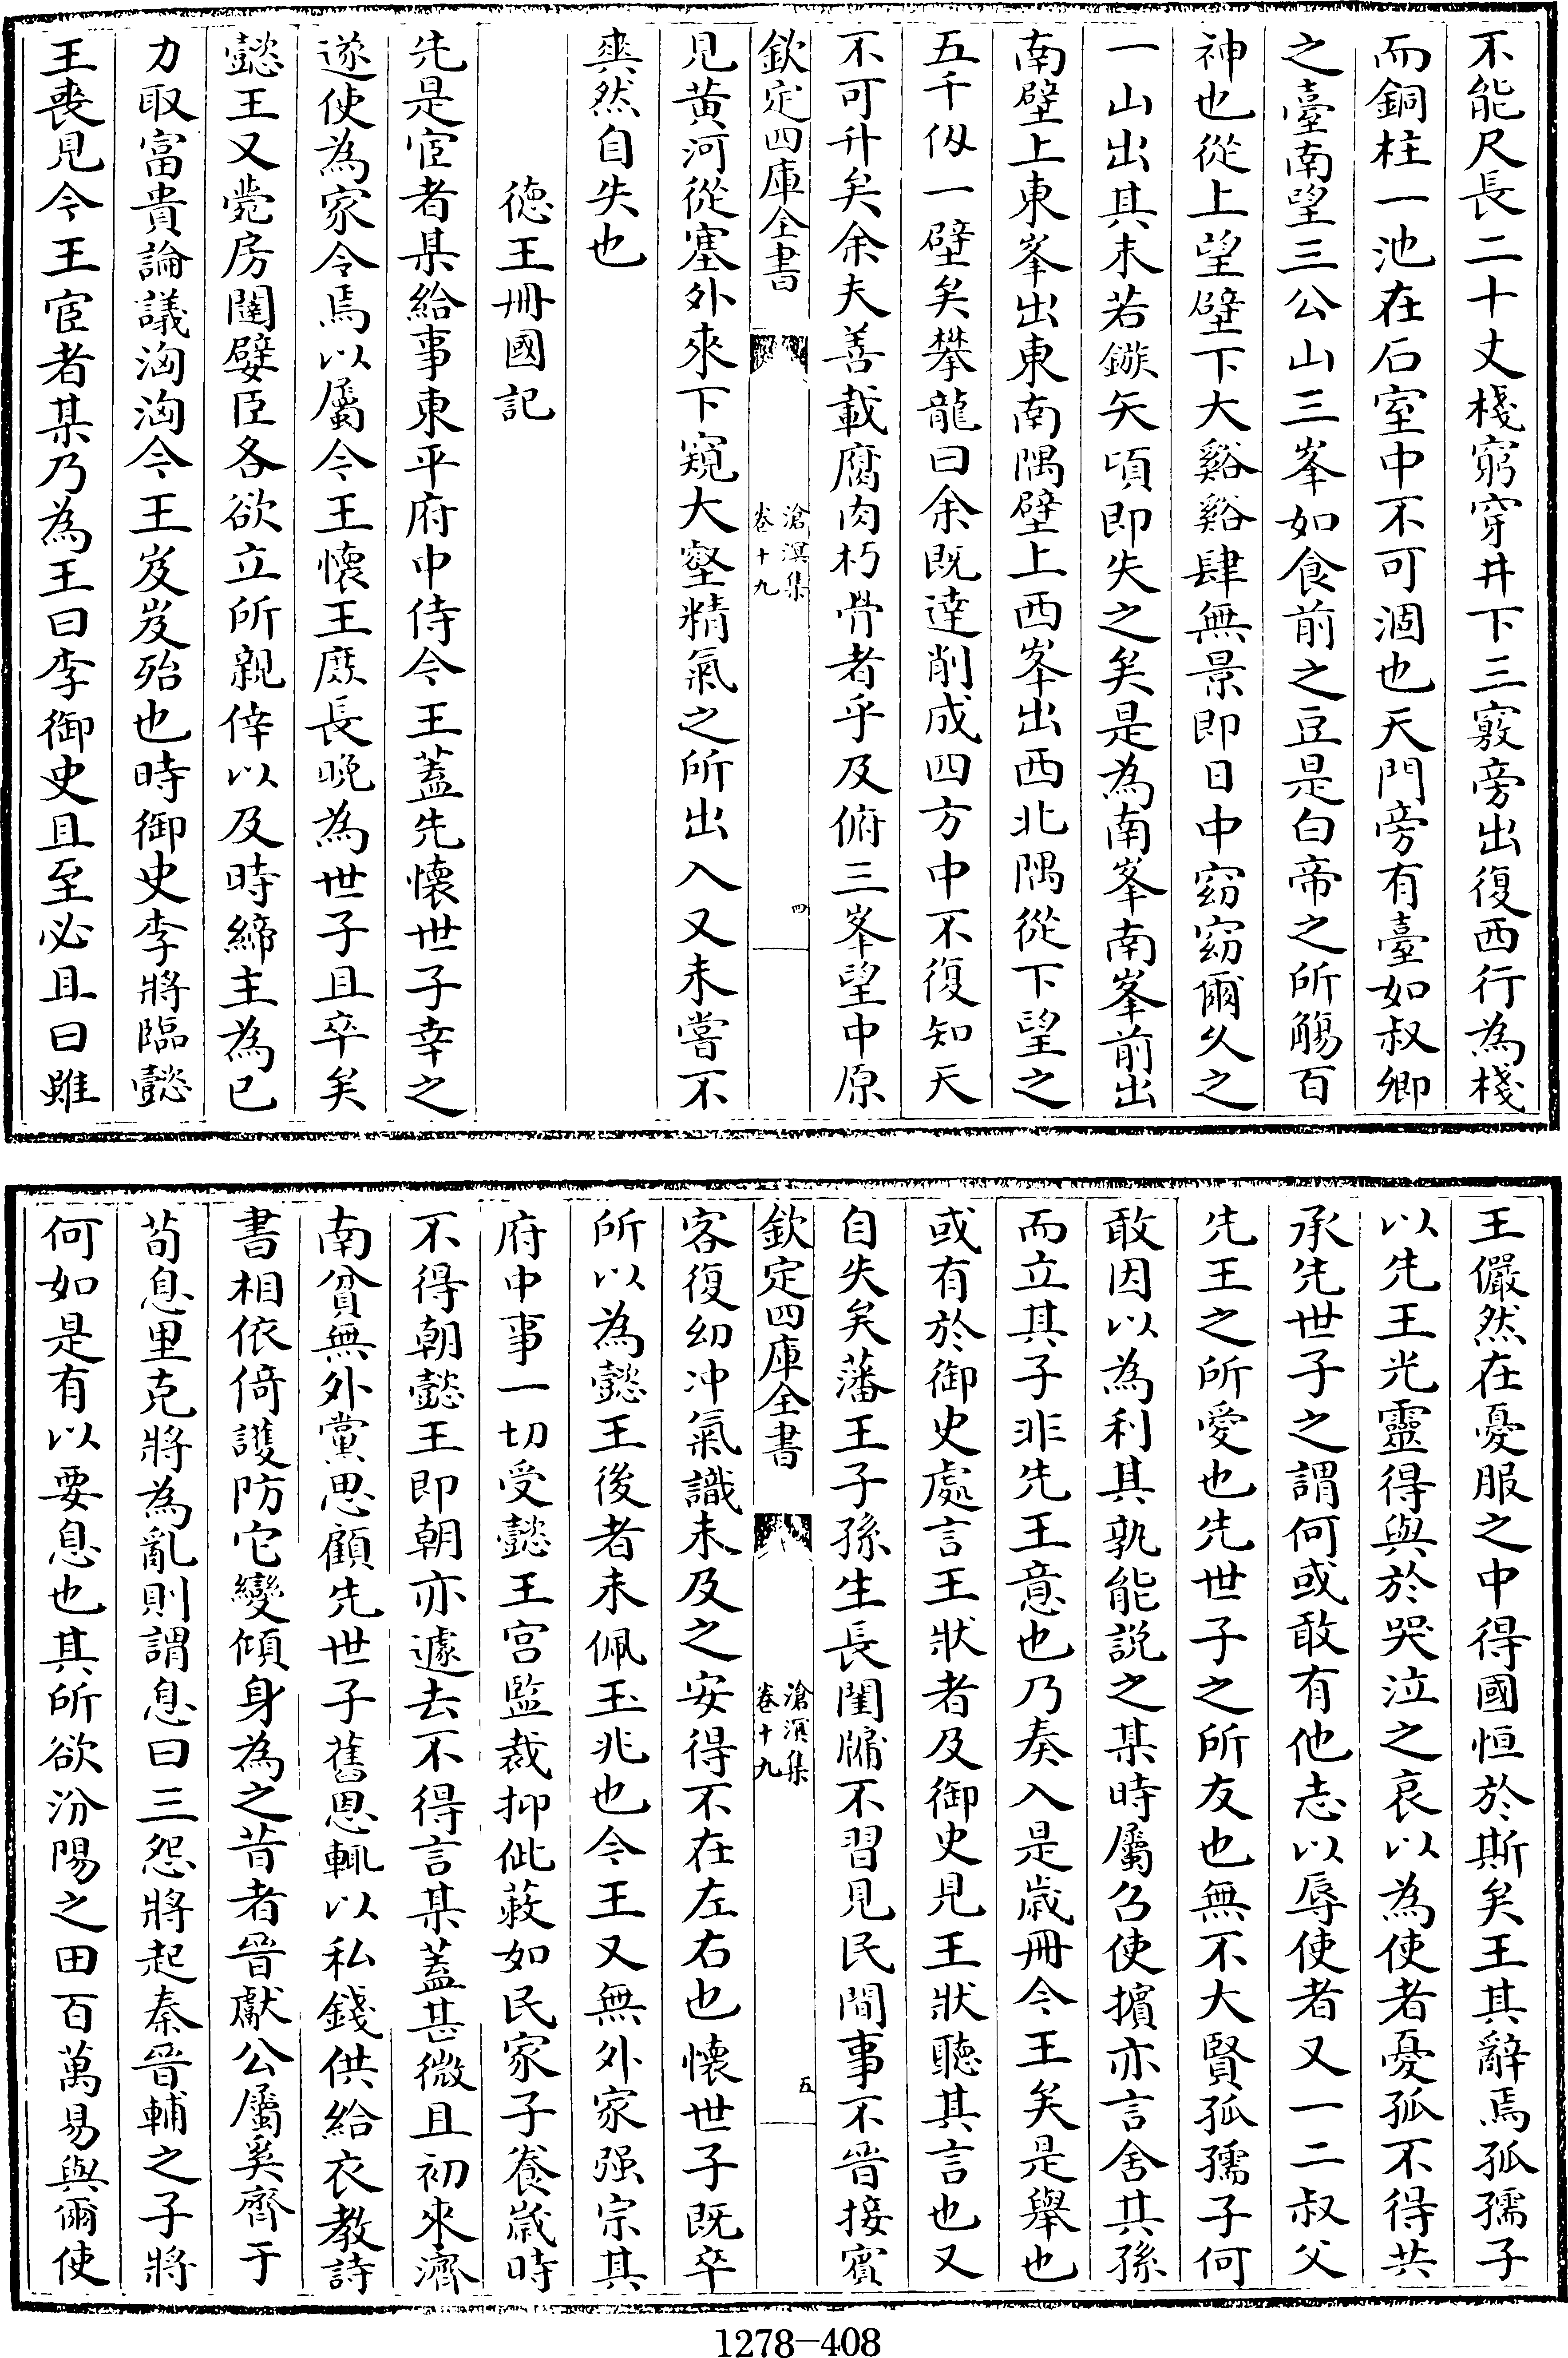 不能尺長二十丈棧窮穿井下三竅旁出復西行為棧
而銅柱一池在石室中不可涸也天門旁有臺如叔卿
之臺南望三公山三峯如食前之豆是白帝之所觴百
神也從上望壁下大谿谿肆無景即日中窈窈爾久之
一山出其末若鏃矢頃即失之矣是為南峯南峯前出
南壁上東峯出東南隅壁上西峯出西北隅從下望之
五千仭一壁矣攀龍曰余既達削成四方中不復知天
不可升矣余夫善載腐肉朽骨者乎及俯三峯望中原
欽定四庫全書
滄溟集
卷十九
四
見黄河從塞外來下窺大壑精氣之所出入又未嘗不
爽然自失也
德王冊國記
先是宦者某給事東平府中侍今王蓋先懷世子幸之
遂使為家令焉以屬今王懷王庶長晚為世子且卒矣
懿王又薨房闥嬖臣各欲立所親倖以及時締主為已
力取富貴論議洶洶今王岌岌殆也時御史李將臨懿
王喪見今王宦者某乃為王曰李御史且至必且曰雖
王儼然在憂服之中得國恒於斯矣王其辭焉孤孺子
以先王光靈得與於哭泣之哀以為使者憂孤不得共
承先世子之謂何或敢有他志以辱使者又一二叔父
先王之所愛也先世子之所友也無不大賢孤孺子何
敢因以為利其孰能說之某時屬召使擯亦言舍其孫
而立其子非先王意也乃奏入是歲冊今王矣是舉也
或有於御史處言王狀者及御史見王狀聽其言也又
自失矣藩王子孫生長闈牖不習見民間事不晉接賓
欽定四庫全書
滄溟集
卷十九
五
客復幼冲氣識未及之安得不在左右也懷世子既卒
所以為懿王後者未佩玉兆也今王又無外家强宗其
府中事一切受懿王宫監裁抑仳蔌如民家子養歲時
不得朝懿王即朝亦遽去不得言某蓋甚微且初來濟
南貧無外黨思顧先世子舊恩輒以私錢供給衣教詩
書相依倚護防它變傾身為之昔者晉獻公屬奚齊于
荀息里克將為亂則謂息曰三怨將起秦晉輔之子將
何如是有以要息也其所欲汾陽之田百萬易與爾使
1278-408